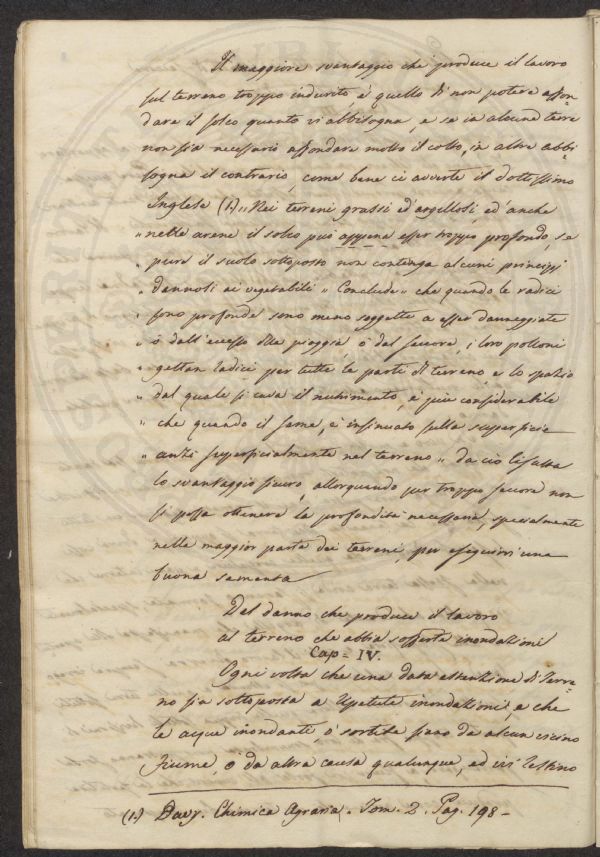 Il maggiore svantaggio che produce il lavoro
sul terreno troppo indurito, è quello di non potere affon=
dare il solco quanto vi abbisogna, e se in alcune terre
non sia necessario affondare molto il colto, in altre abbi=
sogna il contrario, come bene ci avverte il dottissimo
Inglese (1.) „ Nei terreni grassi ed argillosi, ed anche
„ nelle arene il solco può appena esser troppo profondo, se
„ pure il suolo sottoposto non contenga alcuni principj
„ dannosi ai vegetabili „ Conclude „ che quando le radici
„ sono profonde sono meno soggette a esser danneggiate
„ ò dall'eccesso della pioggia, ò dal seccore, i loro polloni
„ gettan radici per tutte le parti del terreno, e lo spazio
„ dal quale si cava il nutrimento, è più considerabile
„ che quando il seme, è insinuato sulla superficie
„ anzi superficialmente nel terreno „ da ciò risulta
lo svantaggio sicuro, allorquando per troppo seccore non
si possa ottenere la profondità necessaria, specialmente
nella maggior parte dei terreni, per eseguirvi una
buona sementa
Del danno che produce il lavoro
al terreno che abbia sofferte inondazioni
Cap = IV.
Ogni volta che una data estenzione di Terre=
no sia sottoposta a repetute inondazioni, e che
le acque inondanti, ò sortite siano da alcun vicino
Fiume, ò da altra causa qualunque, ed ivi restino
(1.) Davy. Chimica Agraria. Tom. 2. Pag. 198 -